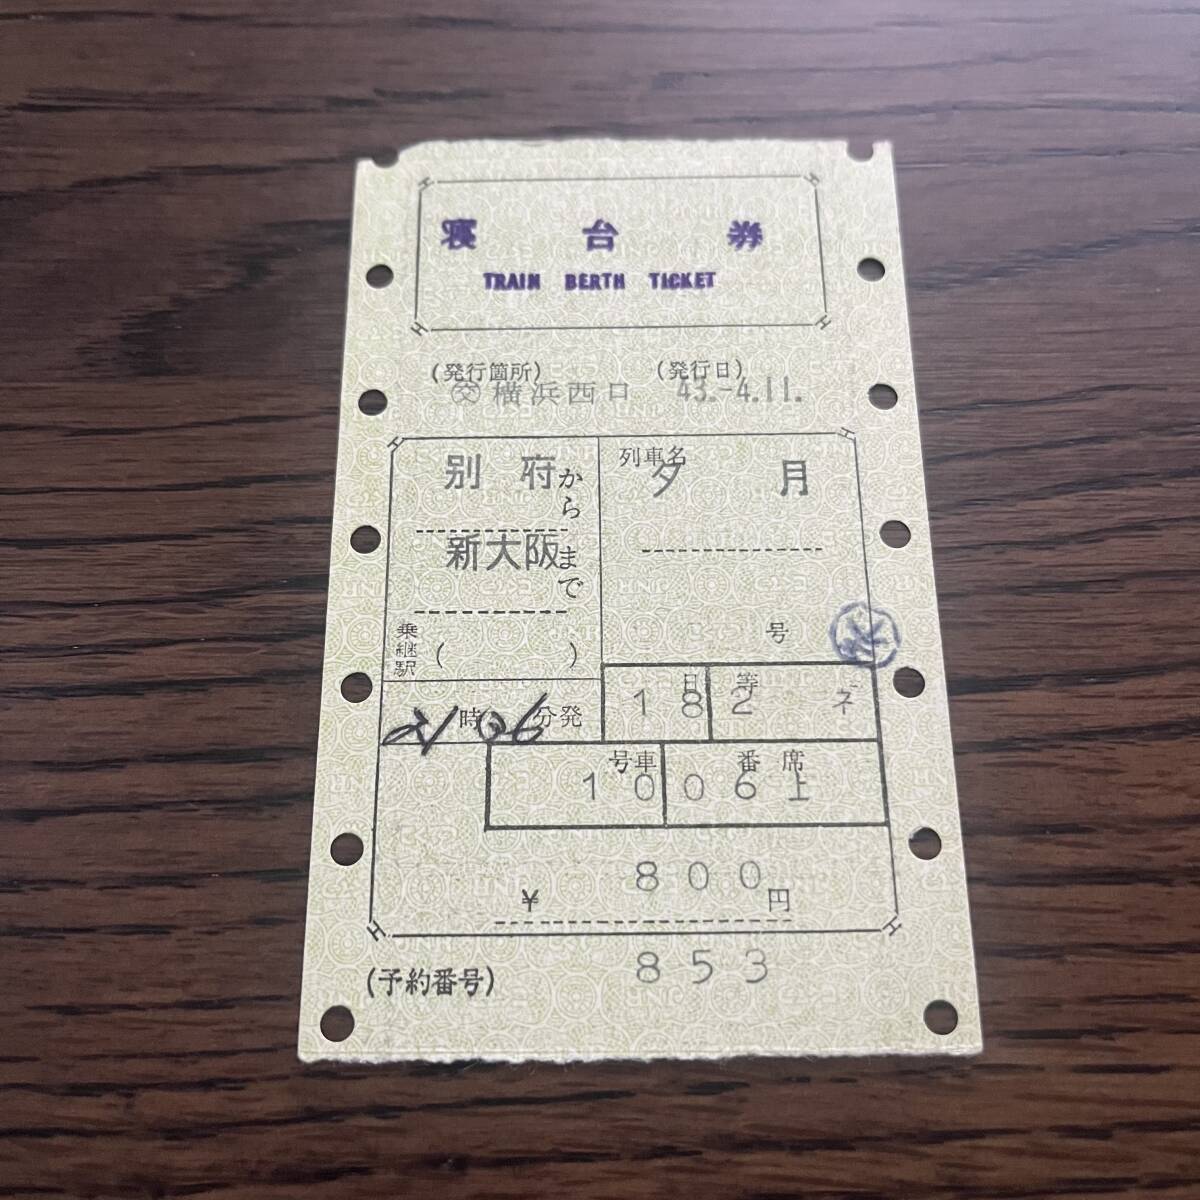 寝台券
TRAIN BERTH TICKET
(発行箇所) (発行日)
㊋横浜西口 43.-4.11.
別府から
新大阪まで
乗継駅 ( )
列車名
夕月
号
21時06分発
18日 2等 ネ
10号車 06上 番席
¥800円
(予約番号) 853